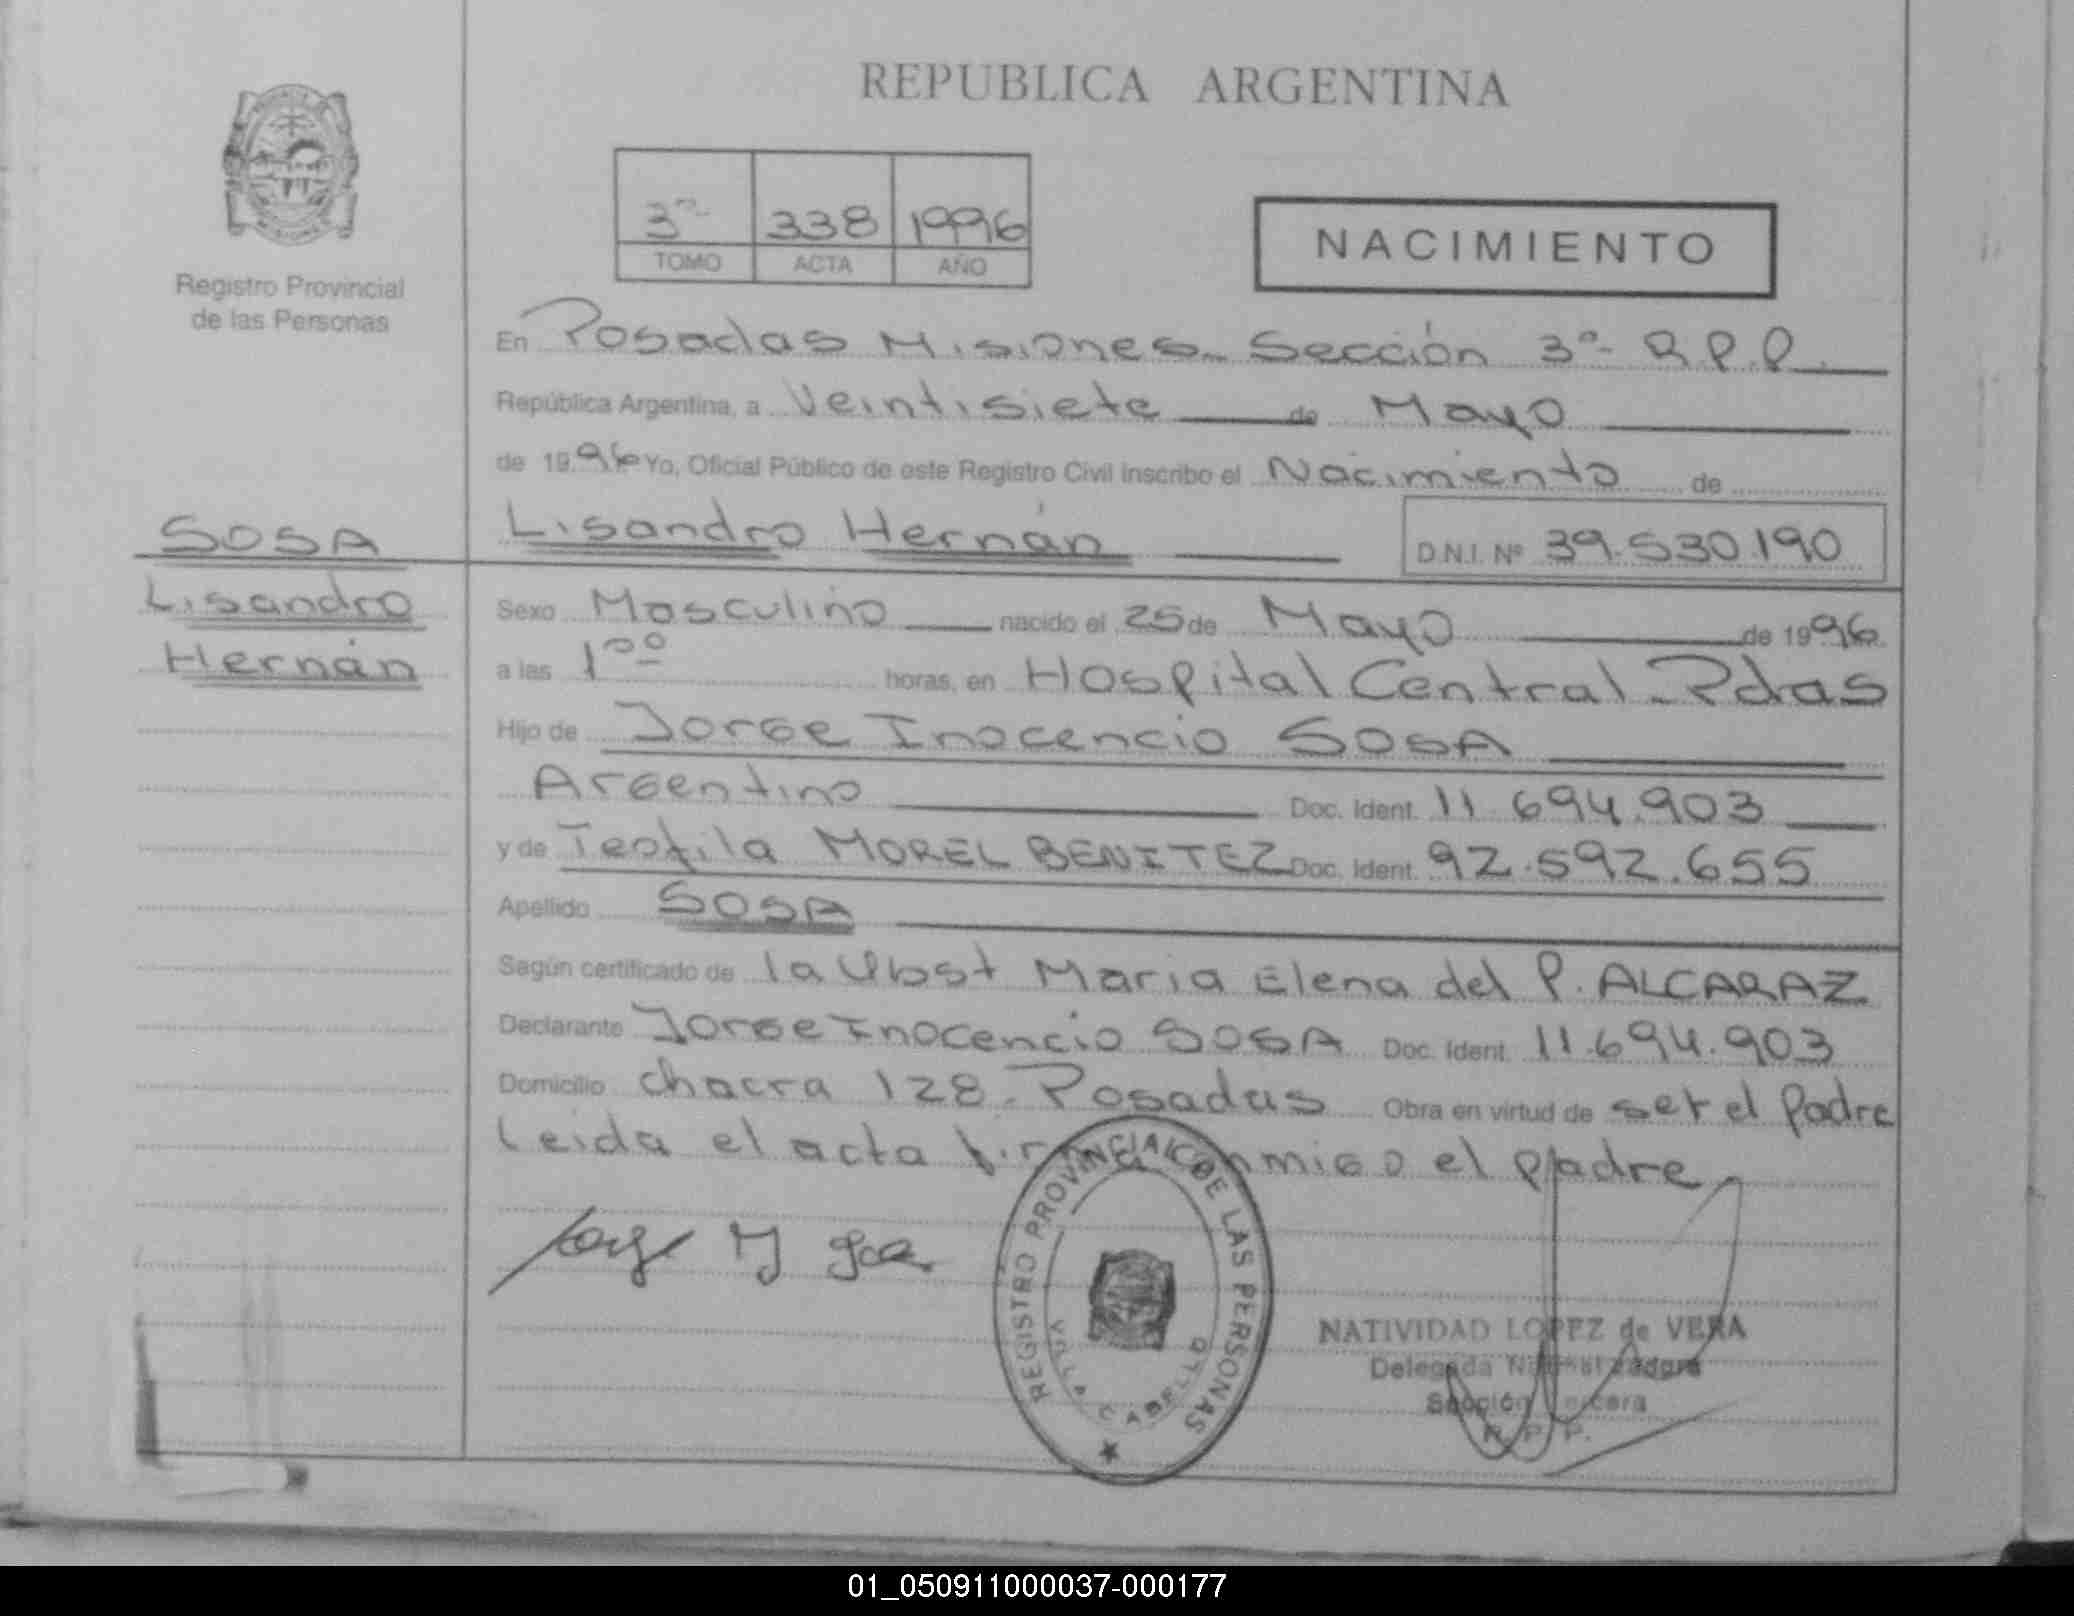 REPUBLICA ARGENTINA
3º 338 1996
TOMO ACTA AÑO
NACIMIENTO
Registro Provincial
de las Personas
En Posadas Misiones Sección 3º R.P.P.
República Argentina, a Veintisiete de Mayo
de 1996 Yo, Oficial Público de este Registro Civil inscribo el Nacimiento de
SOSA
Lisandro
Hernán
Lisandro Hernán D.N.I. Nº 39.530.190
Sexo Masculino nacido el 25 de Mayo de 1996.
a las 1⁰⁰ horas, en Hospital Central Pdas
Hijo de Jorge Inocencio SOSA
Argentino Doc. Ident. 11.694.903
y de Teofila MOREL BENITEZ Doc. Ident. 92.592.655
Apellido SOSA
Según certificado de la Obst Maria Elena del P. ALCARAZ
Declarante Jorge Inocencio SOSA Doc. Ident. 11.694.903
Domicilio chacra 128. Posadas Obra en virtud de ser el Padre
Leida el acta firma conmigo el padre
Jorge I Sosa
REGISTRO PROVINCIAL DE LAS PERSONAS
VILLA CABELLO
NATIVIDAD LOPEZ de VERA
Delegada
Sección Tercera
R. P. P.
01_050911000037-000177